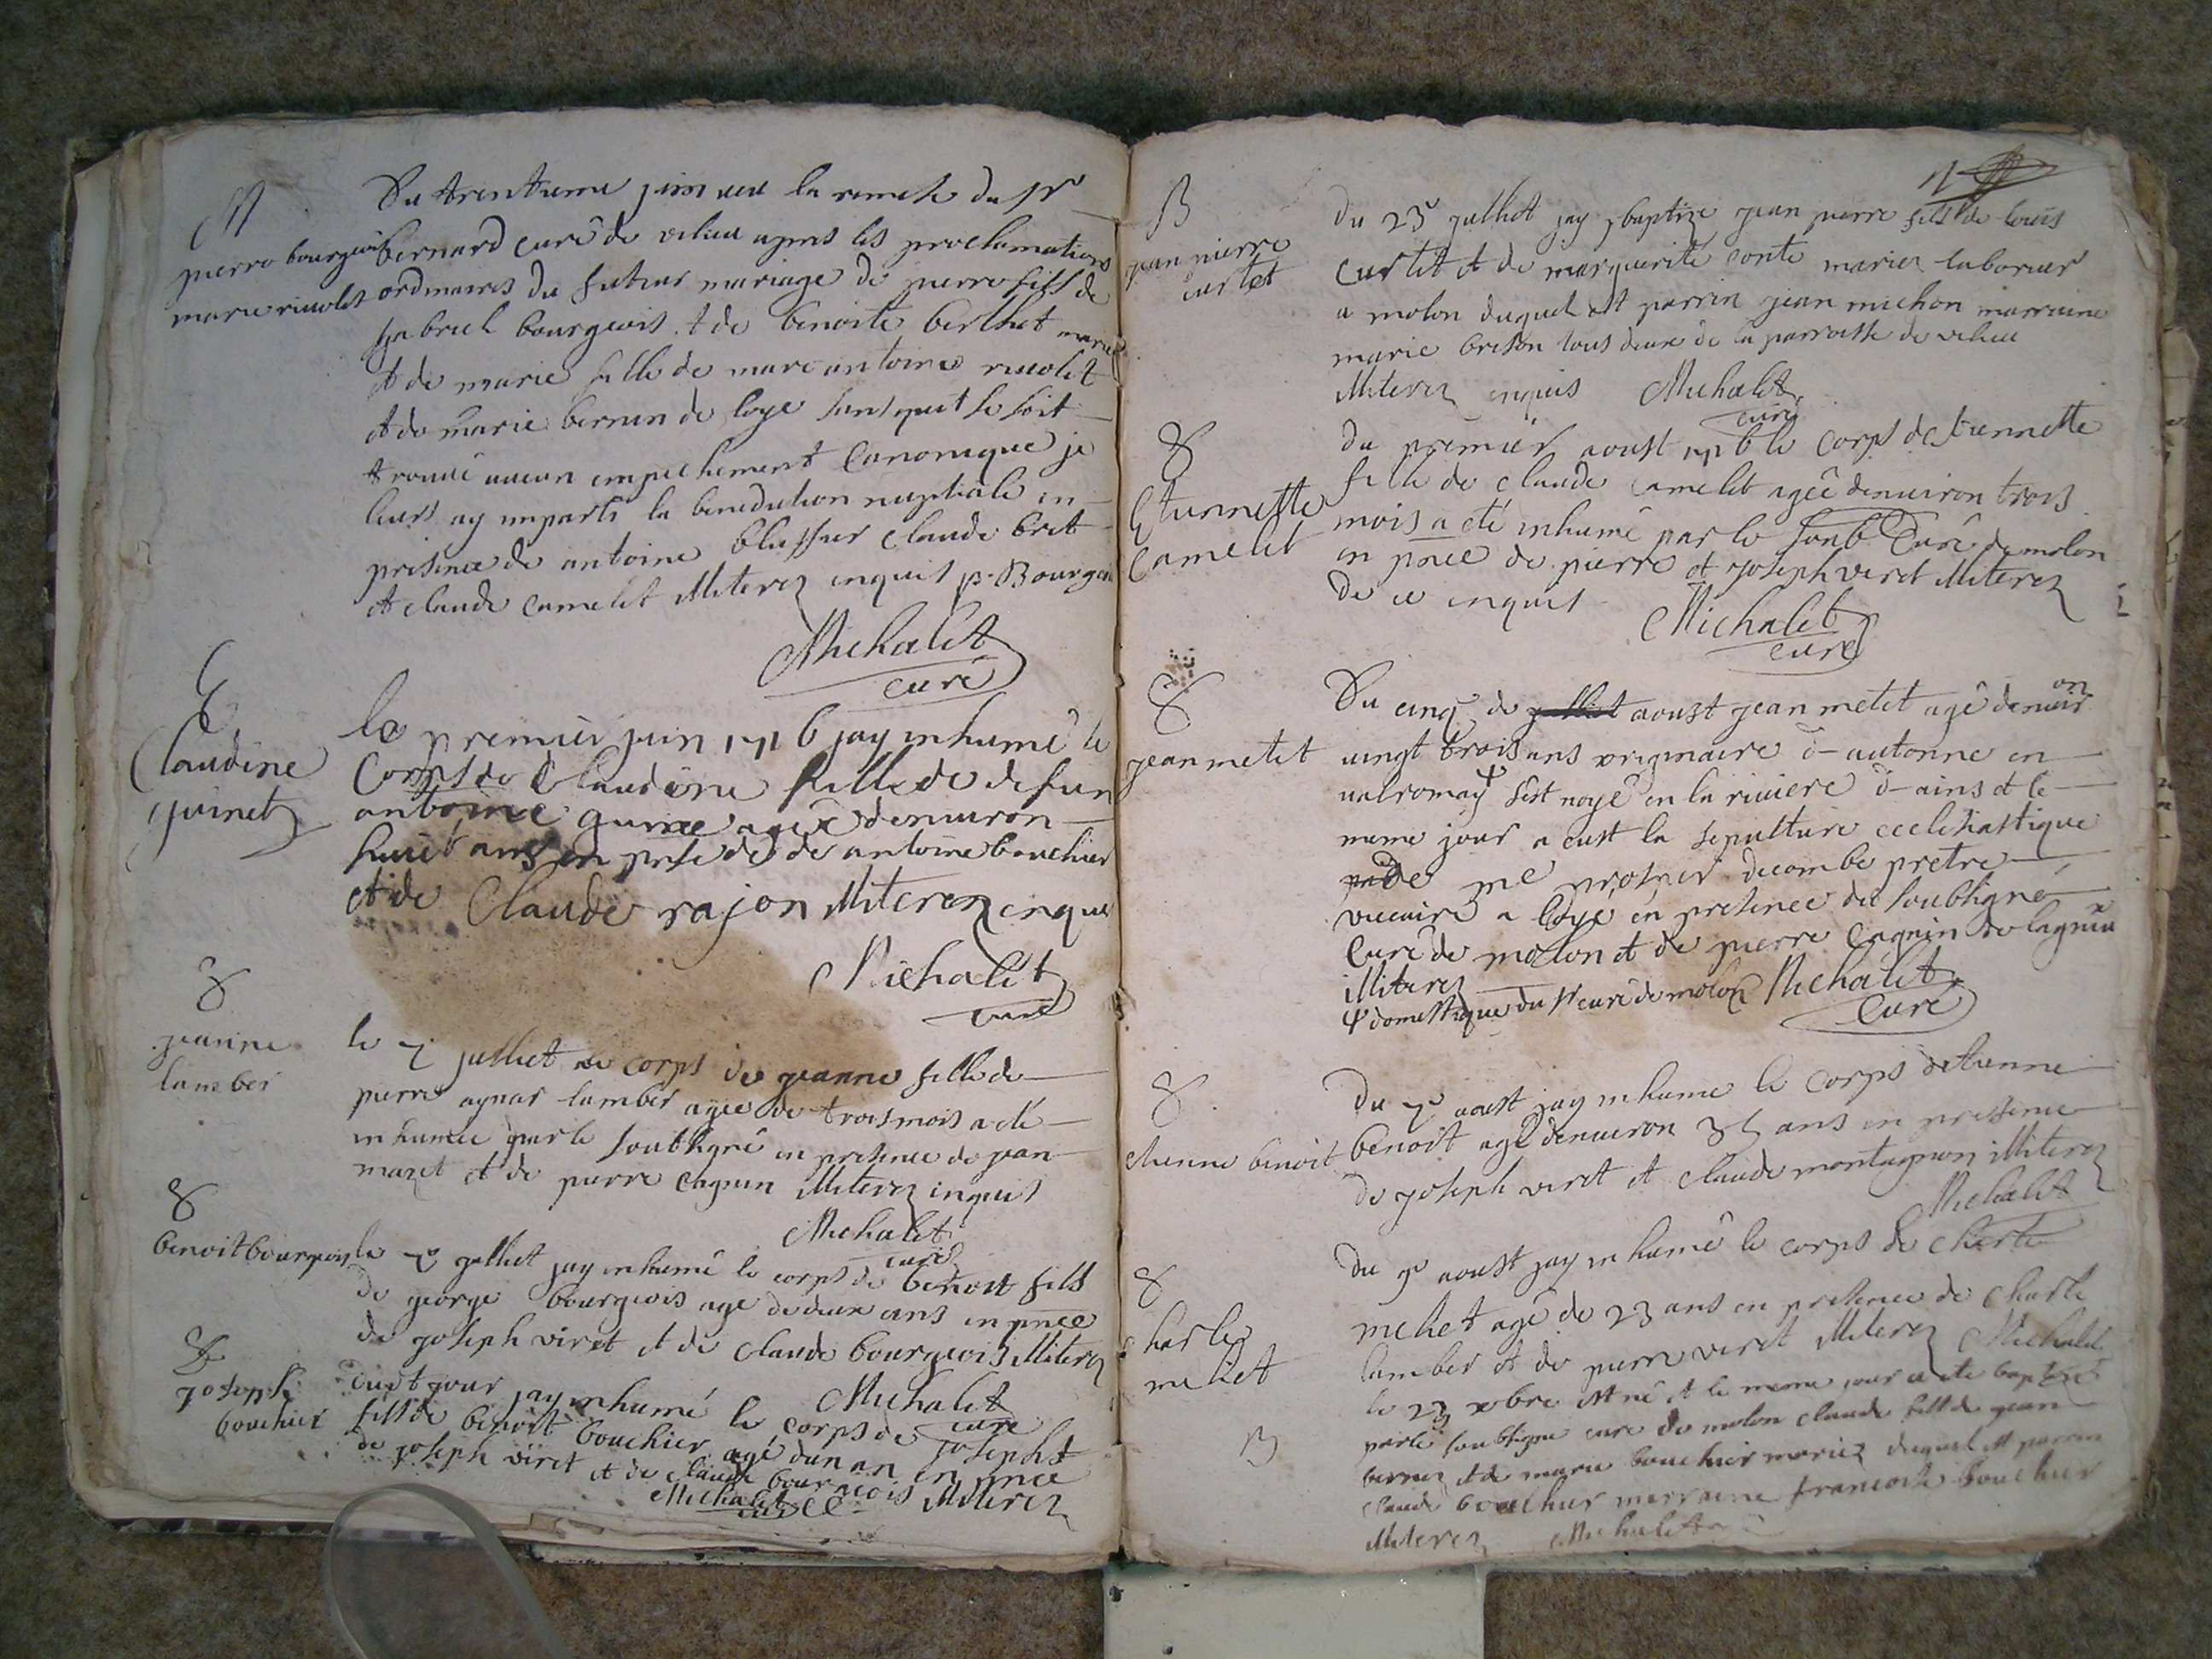 M
pierre bourgeois
marie riuolet
Du trentieme juin ueu la remise du sr
bernard curé de uilieu apres les proclamations
ordinaires du futeur mariage de pierre fils de
gabriel bourgeois et de benoite berthet mariez
et de marie fille de marc antoine riuolet
et de marie bernin de loye sans quit se soit
trouué aucun empechement canonique je
leurs ay imparti la benediction nuptiale en
presence de antoine claude bret
et claude camelet illiterez enquis p. Bourgeois
Michalet
curé
Claudine
guinet
le premier juin 1716 jay inhumé le
Corps de Claudine fille de defun
antoine guinet agee denuiron
huit ans en pnse de de antoine bouchier
et de Claude rajon illiterez enquis
Michalet
curé
8
jeanne
lamber
le 7 julliet le corps de jeanne fille de
pierre aynar lamber agee de trois mois a eté
inhumée par le soubsigné en presence de jean
mazet et de pierre cagnin illiterez enquis
Michalet
curé
8
benoit bourgeois
le 7e julliet jay inhumé le corps de benoit fils
de george bourgeois age de deux ans en pnce
de joseph viret et de claude bourgeois illiterez
Michalet
curé
8
joseph
bouchier
dudt jour jay inhumé le corps de joseph
fils de benoit bouchier agé dun an en pnce
de joseph viret et de claude bourgeois illiterez
Michalet curé
B
jean pierre
curtet
du 23e julliet jay baptize jean pierre fils de louis
Curtet et de marguerite conte mariez laborieur
a molon duquel est parrin jean michon marraine
marie brison tous deux de la parroisse de uilieu
illiterez enquis Michalet
curé
8
Etiennette
Camelet
du premier aoust 1716 le corps detiennette
fille de claude camelet agée denuiron trois
mois a eté inhumé par le soubs. Curé de molon
en pnce de pierre et joseph veret illiterez
de ce enquis
Michalet
curé
8
jean metet
Du cinq de aoust jean metet agé denuiron
uingt trois ans originaire d-autonne en
ualromay sest noyé en la riuiere d-ains et le
meme jour a eust la sepulture ecclesiastique
de me prosper decombe pretre
viccaire a loye en presence du soubsigné
Curé de molon et de pierre Cagnin de lagnieu
illiterez
domestique du sr curé de molon Michalet
Curé
8
etienne benoit
du 7e aoust jay inhumé le corps detienne
benoit agé denuiron 35 ans en presence
de joseph veret et claude montagnon illiterez
Michalet
8
charle
mehet
du 9e aoust jay inhumé le corps de charle
mehet agé de 23 ans en presence de charle
lamber et de pierre veret illiterez Michalet
B
le 23 xbre est né et le meme jour a ete baptizé
par le soubsigne cure de molon claude fils de jean
bernin et de marie bouchier mariez duquel est parrin
claude bouchier marraine francoise bouchier
illiterez Michalet